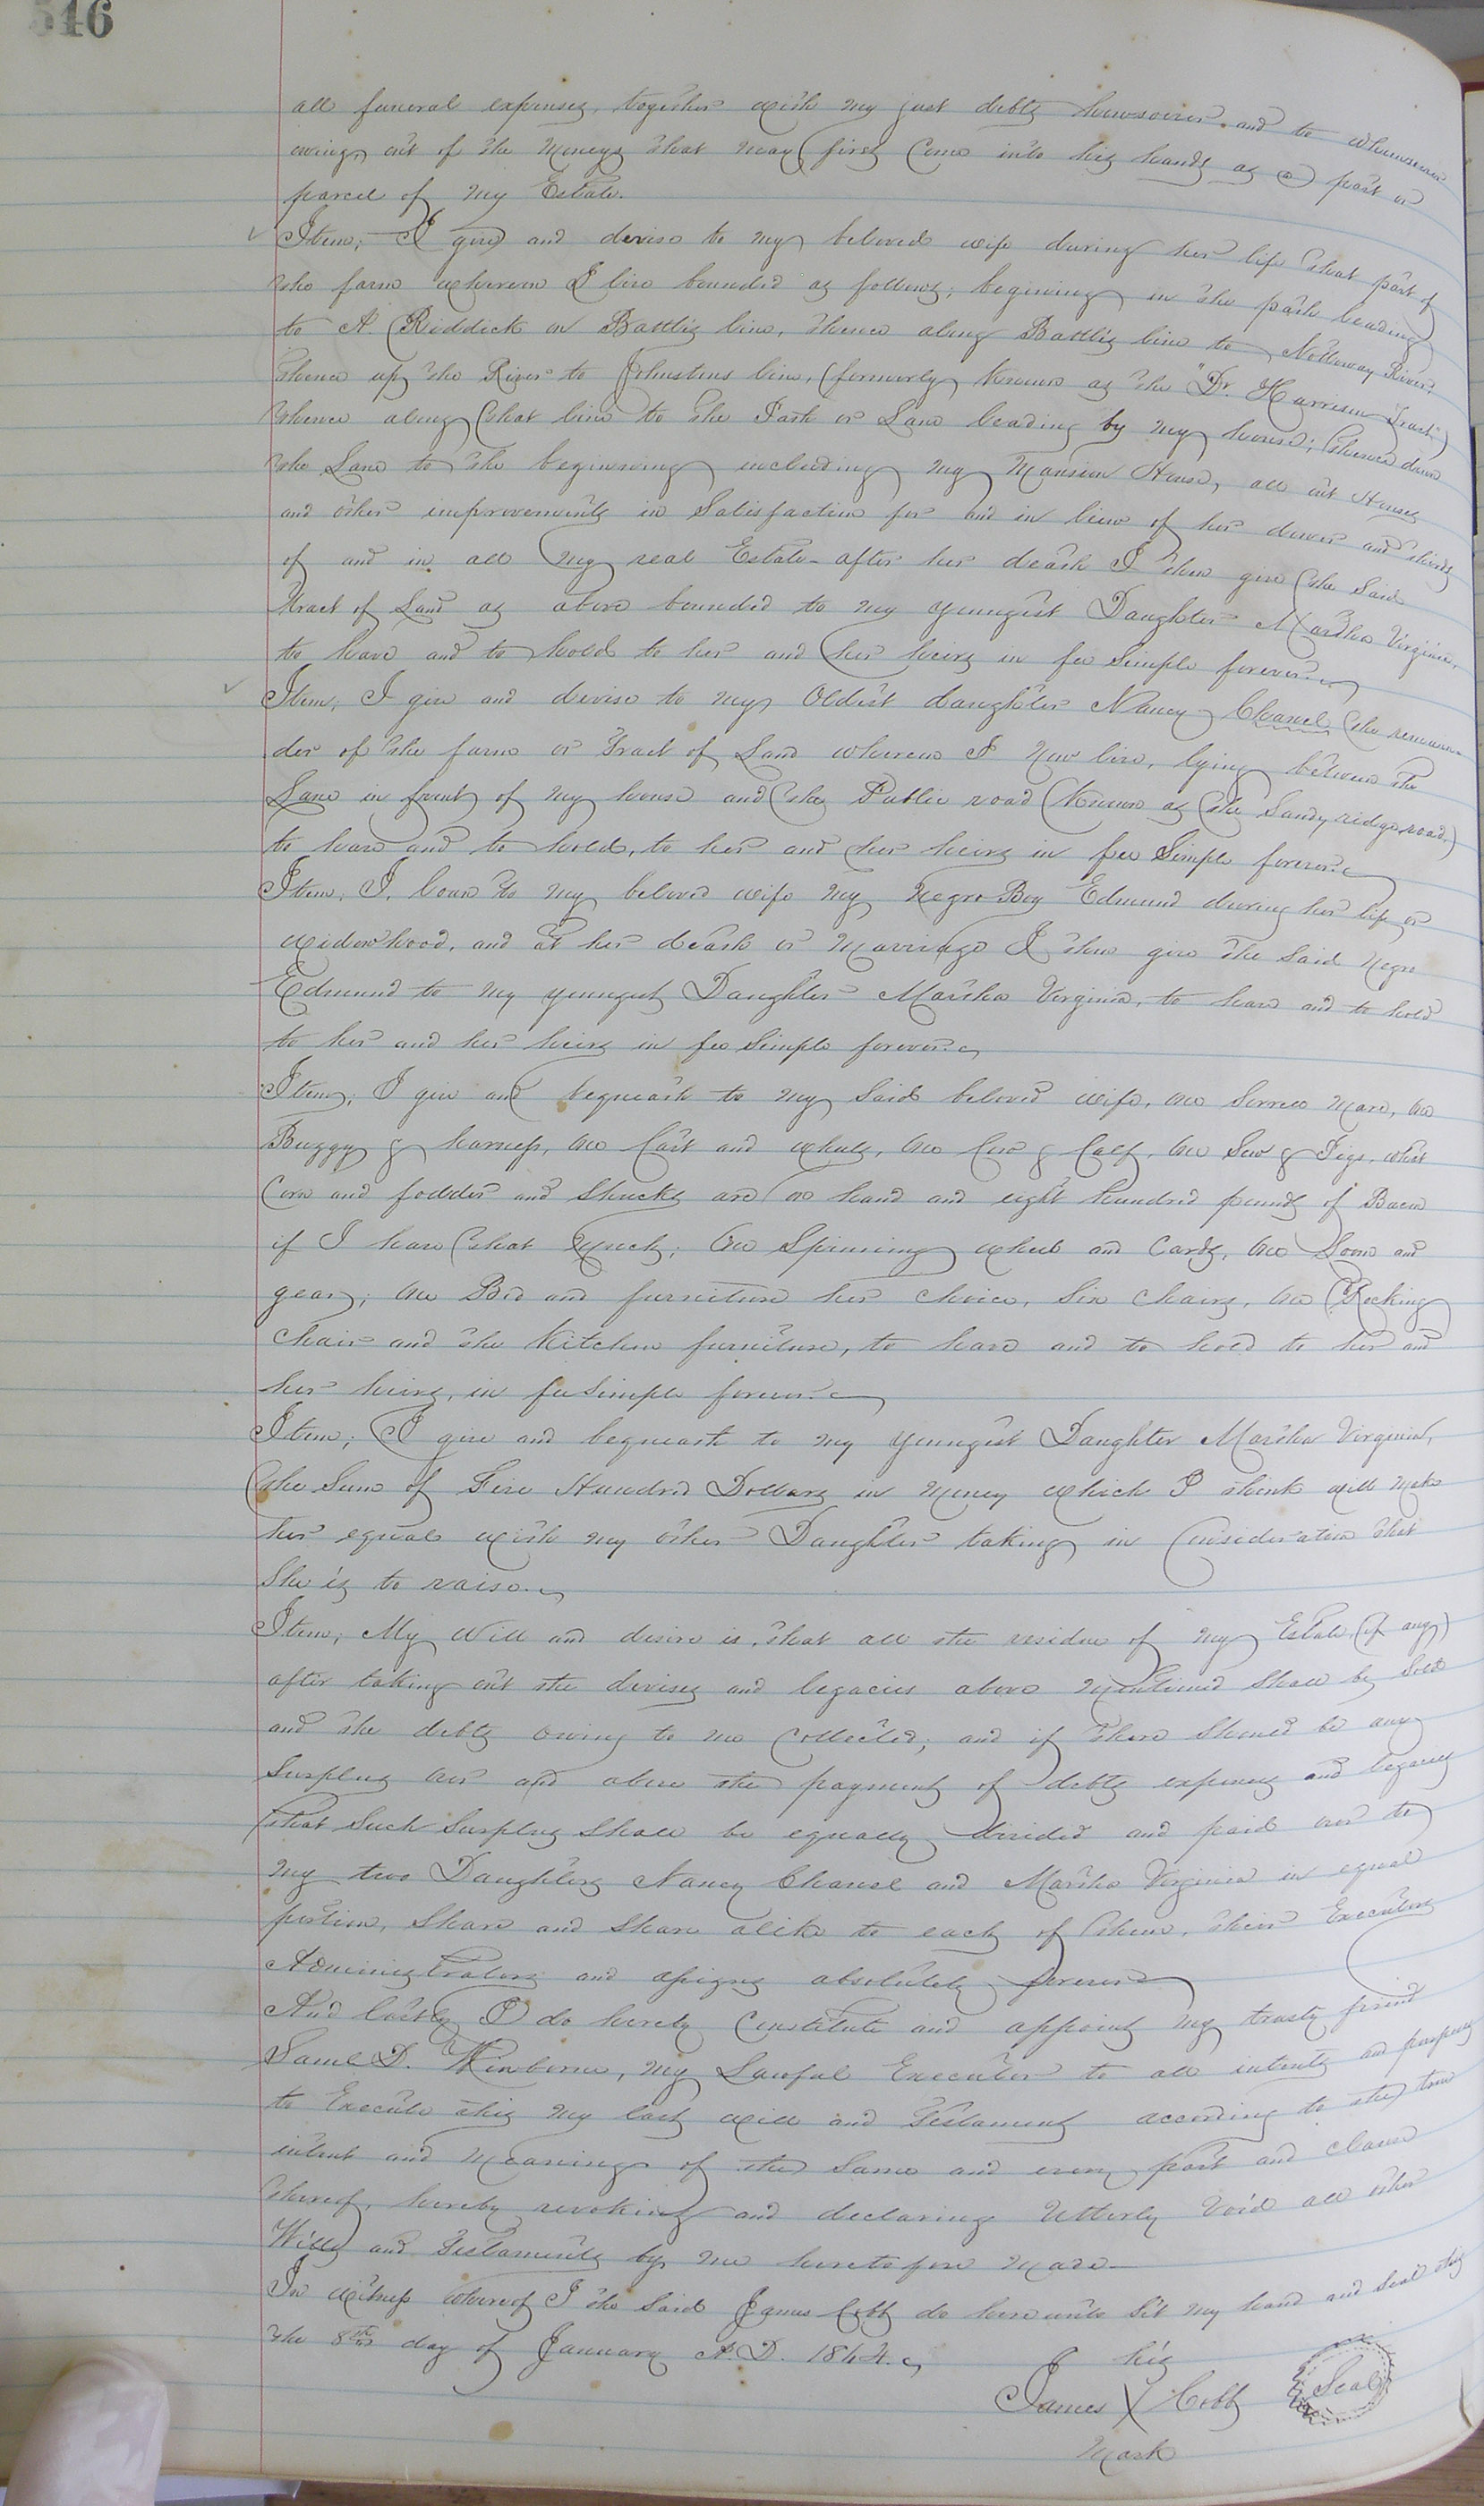 546
all funeral expenses, together with my just debts howsoever and to whomsoever
owing, out of the moneys that may first come into his hands as a part or
parcel of my Estate.
Item; I give and devise to my beloved wife during her life that part of
the farm whereon I live bounded as follows; begining in the path leading
to A. Riddick on Battles line, thence along Battles line to Nottoway River,
thence up the River to Johnstons line, (formerly known as the "Dr. Harrison Tract")
thence along that line to the Path or Lane leading by my house; thence down
the Lane to the beginning including my Mansion House, all out Houses
and other improvements in Satisfaction for and in lieu of her dower and thirds
of and in all my real Estate - after her death I then give the said
tract of Land as above bounded to my youngest Daughter Martha Virginia,
to have and to hold to her and her heirs in fee Simple forever.
Item, I give and devise to my Oldest daughter Nancy Chanel the remain-
der of the farm or Tract of Land whereon I now live, lying between the
Lane in front of my house and the Public road (known as the Sandy ridge road,)
to have and to hold, to her and her heirs in fee Simple forever.
Item, I, loan to my beloved wife my Negro Boy Edmund during her life or
widowhood, and at her death or marriage I then give the said Negro
Edmund to my youngest Daughter Martha Virginia, to have and to hold
to her and her heirs in fee Simple forever.
Item; I give and bequeath to my said beloved wife, one Sorrel Mare, one
Buggy & harness, one Cart and wheels, one Cow & Calf, one Sow & Pigs, what
Corn and fodder and Shucks are on hand and eight hundred pounds of Bacon
if I have that much; One Spinning wheel and Cards, One Loom and
gear; One Bed and furniture her choice, Six Chairs, One Rocking
Chair and the Kitchen furniture, to have and to hold to her and
her heirs, in fee Simple forever.
Item; I give and bequeath to my youngest Daughter Martha Virginia,
the Sum of Five Hundred Dollars in money which I think will make
her equal with my other Daughter taking in Consideration that
She is to raise.
Item; My Will and desire is, that all the residue of my Estate, (if any)
after taking out the devises and legacies above mentioned shall be Sold
and the debts owing to me Collected; and if there should be any
Surplus over and above the payment of debts expenses and legacies
that Such Surplus shall be equally divided and paid over to
my two Daughters Nancy Chanel and Martha Virginia in equal
portion, Share and Share alike to each of them, their Executors
Administrators and assigns absolutely forever
And lastly I do hereby Constitute and appoint my trusty friend
Saml D. Winborne, my Lawful Executor to all intents and purposes
to Execute this my last will and Testament according to the true
intent and Meaning of the Same and every part and clause
thereof, hereby revoking and declaring Utterly Void all other
Wills and Testaments by me heretofore made -
In witness whereof I the said James Cobb do hereunto Set my hand and seal this
the 8th day of January A.D. 1864.
his
James X Cobb Seal
Mark